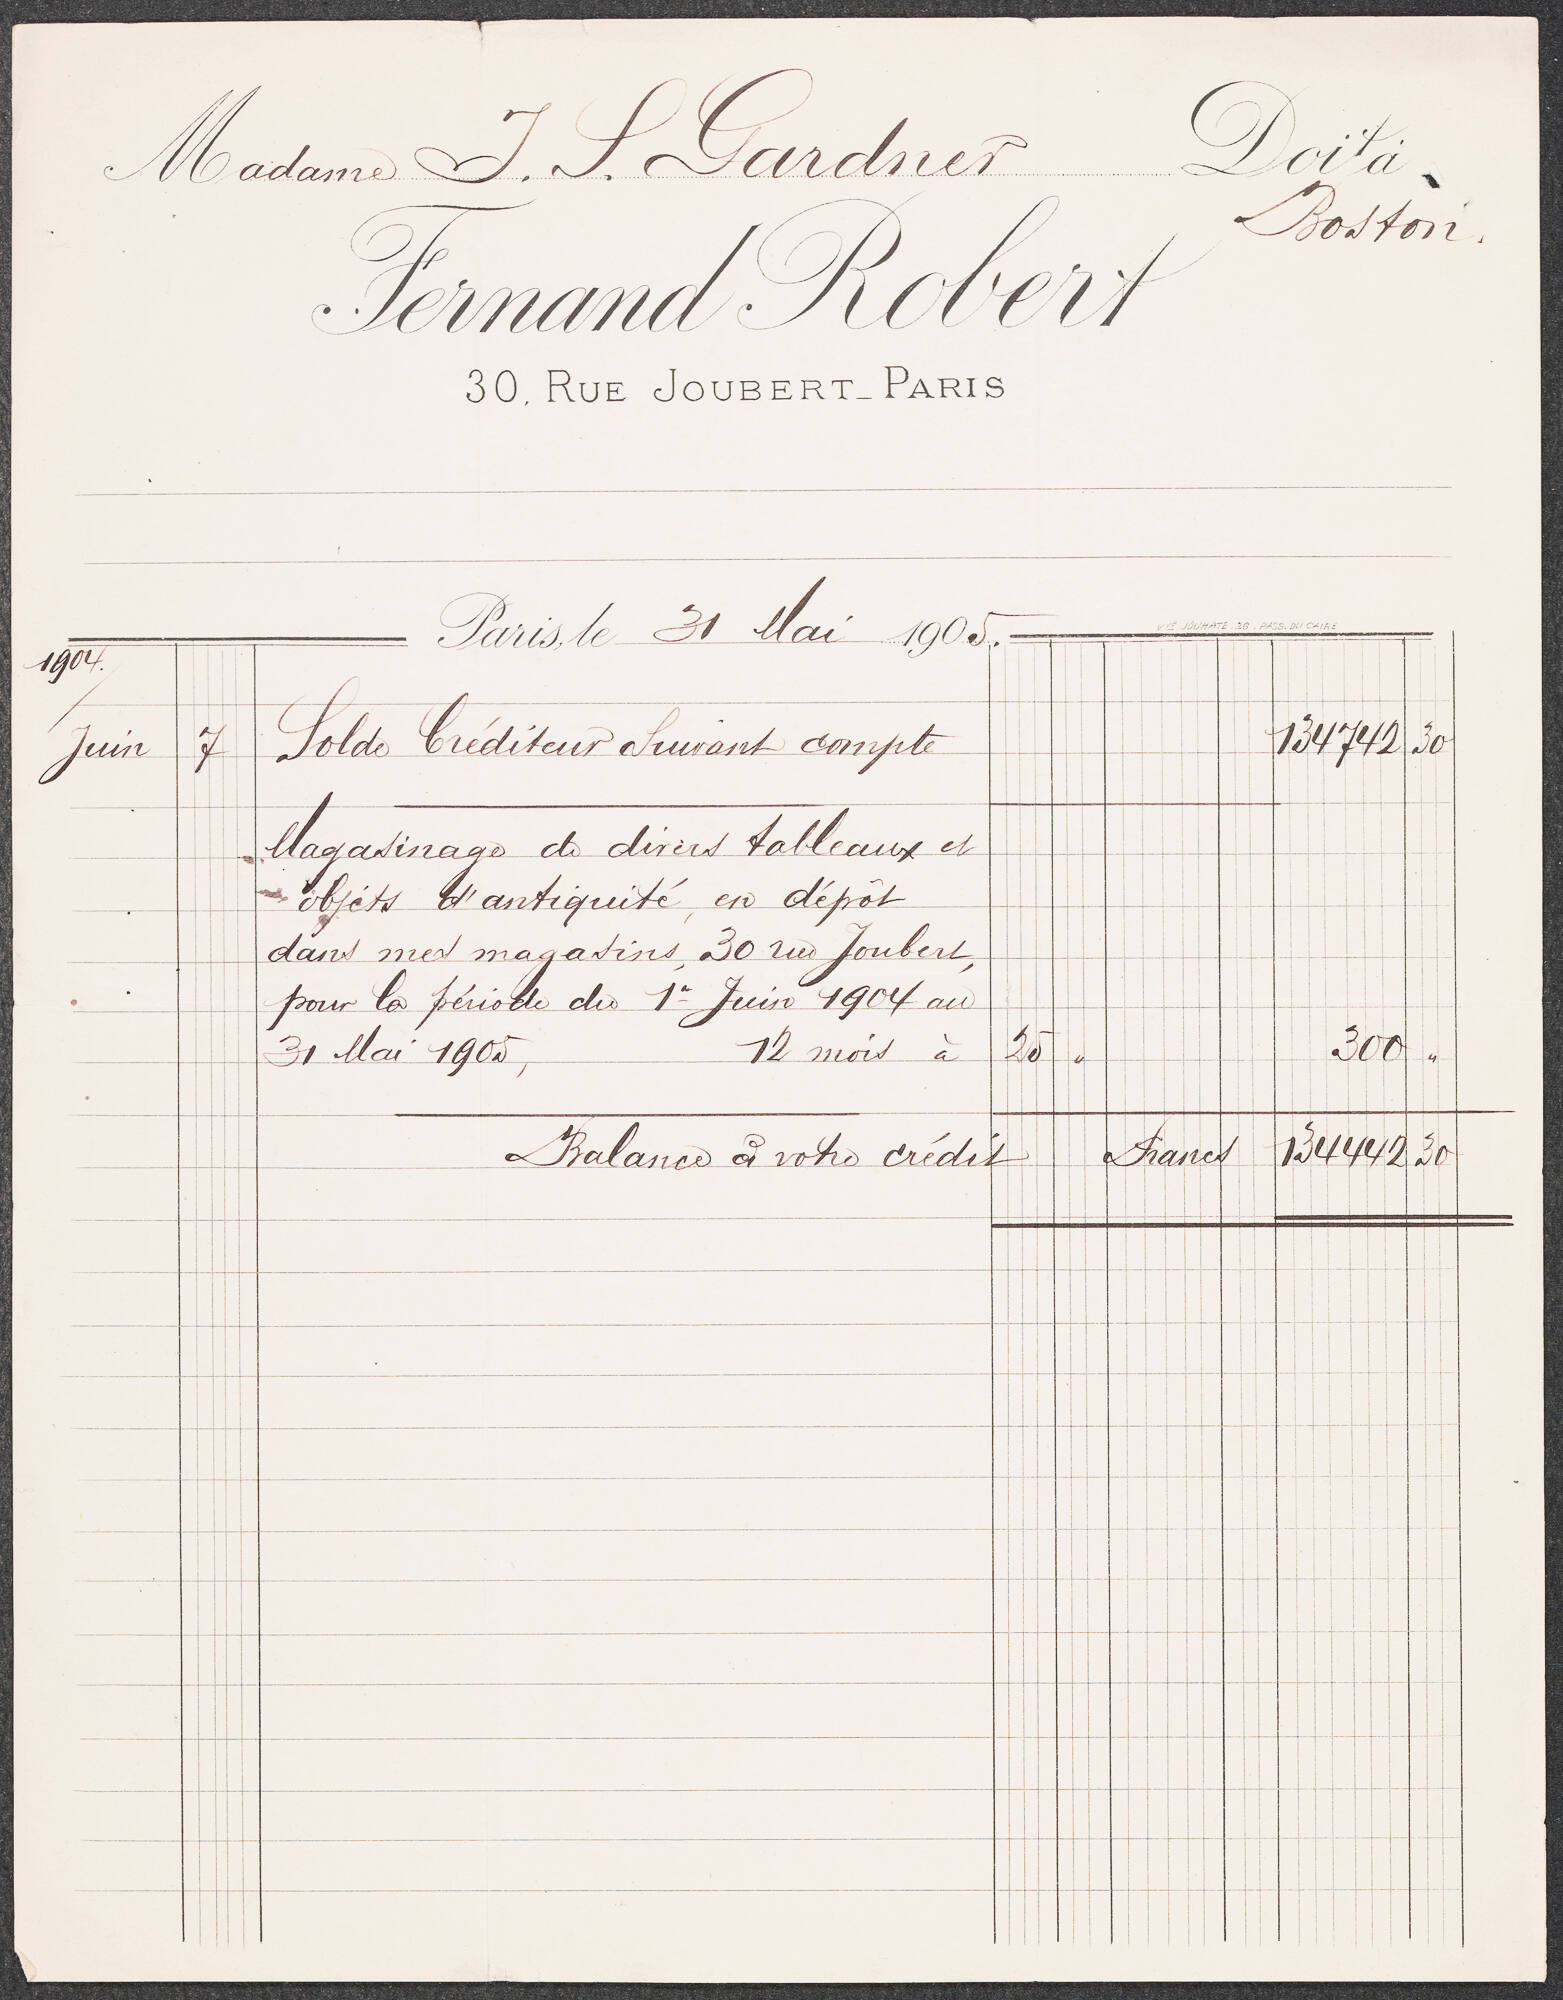 Madame J. S. Gardner Doit à
Boston.
Fernand Robert
30, RUE JOUBERT_PARIS
Paris, le 31 Mai 1905.
VTE JOUHATE. 36. PASS. DU CAIRE
1904.
Juin 7 Solde Créditeur Suivant compte 134742 30
Magasinage de divers tableaux et
objets d'antiquité, en dépôt
dans mes magasins, 30 rue Joubert,
pour la période du 1er Juin 1904 au
31 Mai 1905, 12 mois à 25 " 300 "
Balance à votre crédit Francs 134442 30